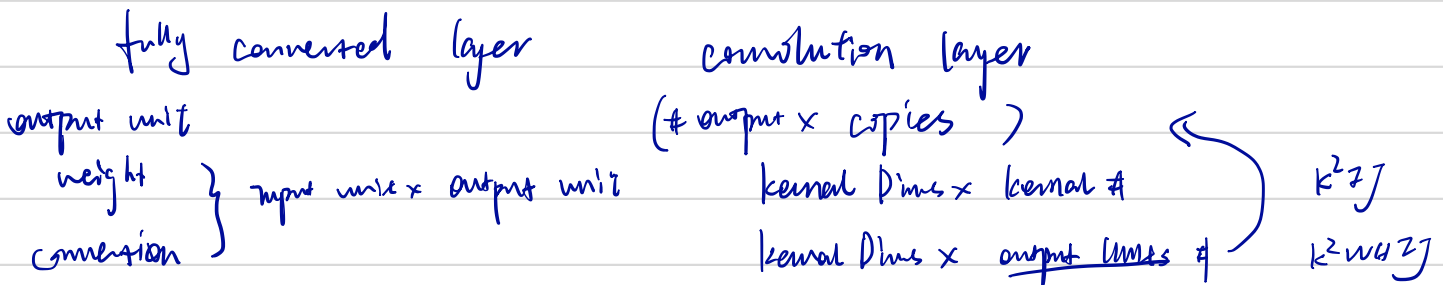 fully connected layer convolution layer
output unit (# output x copies )
weight } input unit x output unit kernal Dims x kernal # K²IJ
connection kernal Dims x output units # K²WHIJ